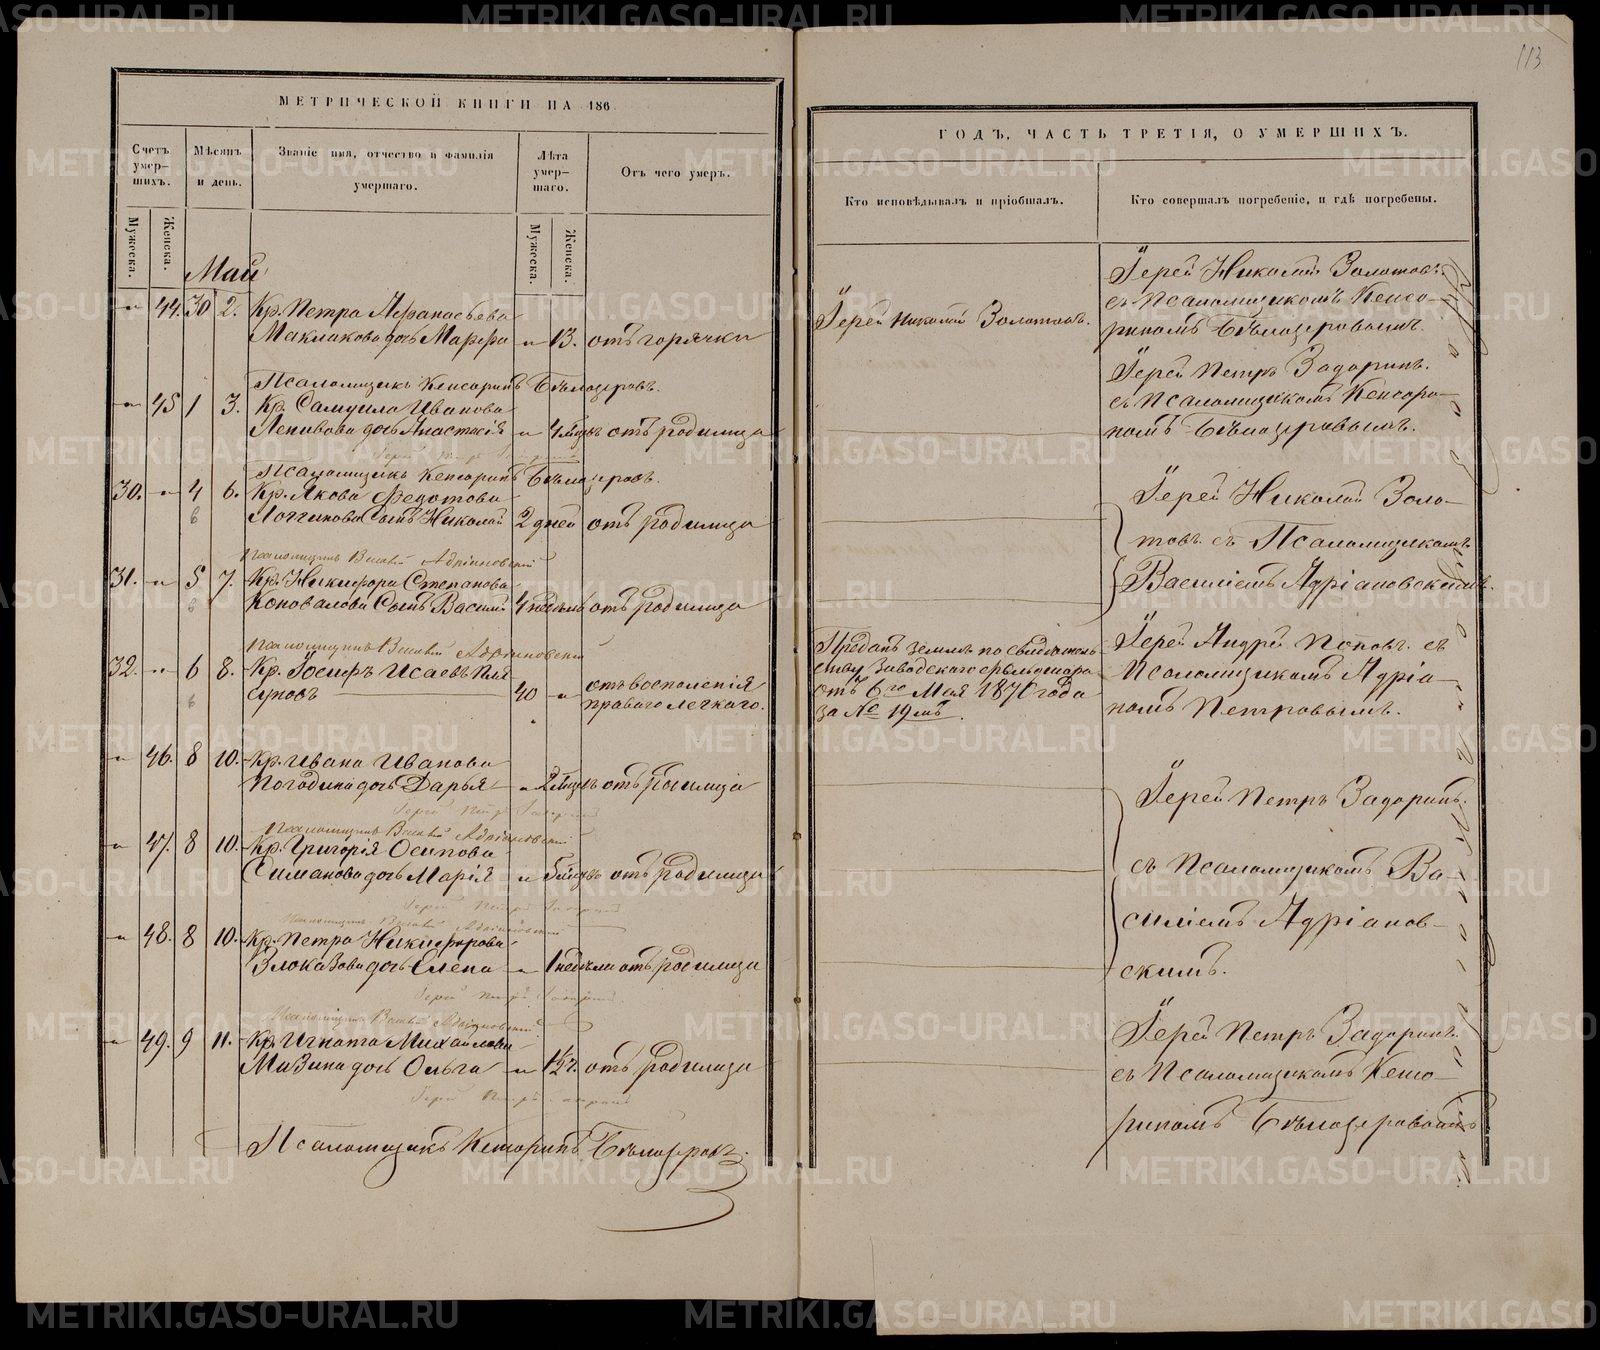 113
МЕТРИЧЕСКОЙ КНИГИ НА 186
Счетъ умер-шихъ.
Мѣсяцъ и день.
Званіе имя, отчество и фамилія умершаго.
Лѣта умер-шаго.
Отъ чего умеръ.
Мужеска.
Женска.
Мужеска.
Женска.
Май
„ 44. 30 2. Кр. Петра Афанасьева
Маклакова дочь Марфа „ 13. отъ горячки
Псаломщикъ Кенсоринъ Бѣлозеровъ.
„ 45 1 3. Кр. Самуила Иванова
дочь Анастасія „ отъ родимца
Псаломщикъ Кенсоринъ Бѣлозеровъ.
30. „ 4 6. Кр. Якова Федотова
6 Логгинова Сынъ Николай 2 дней отъ родимца
Псаломщикъ Адріановскій
31. „ 5 7. Кр. Никифора Степанова
6 Коновалова Сынъ Василій отъ родимца
Псаломщикъ Адріановскій
32. „ 6 8. Кр. Іосифъ Исаевъ Пля
6 суновъ 40 „ отъ воспаленія
праваго легкаго.
„ 46. 8 10. Кр. Ивана Иванова
Погодина дочь Дарья „ отъ родимца
Іерей Петръ Задоринъ
Псаломщикъ Адріановскій
„ 47. 8 10. Кр. Григорія Осипова
Симанова дочь Марія „ отъ родимца
Іерей Петръ Задоринъ
Псаломщикъ Адріановскій
„ 48. 8 10. Кр. Петра Никифорова
Злоказова дочь Елена „ 1 недѣли отъ родимца
Іерей Петръ Задоринъ
Псаломщикъ Адріановскій
„ 49. 9 11. Кр. Игната Михайлова
Мизина дочь Ольга „ отъ родимца
Іерей Петръ Задоринъ
Псаломщикъ Кенсоринъ Бѣлозеровъ.
ГОДЪ, ЧАСТЬ ТРЕТІЯ, О УМЕРШИХЪ.
Кто исповѣдывалъ и пріобщалъ.
Кто совершалъ погребеніе, и гдѣ погребены.
Іерей Николай Золотовъ.
Іерей Николай Золотовъ
съ Псаломщикомъ Кенсо-
риномъ Бѣлозеровымъ.
Іерей Петръ Задоринъ.
съ Псаломщикомъ Кенсори-
номъ Бѣлозеровымъ.
Іерей Николай Золо-
товъ съ Псаломщикомъ
Василіемъ Адріановскимъ.
Преданъ землѣ по свидѣтель
ству Заводскаго
отъ 6го Мая 1870 года
за № 19мъ.
Іерей Андрей Поповъ съ
Псаломщикомъ Адріа-
номъ Петровымъ.
Іерей Петръ Задоринъ.
съ Псаломщикомъ Ва-
силіемъ Адріанов-
скимъ.
Іерей Петръ Задоринъ.
съ Псаломщикомъ Кенсо-
риномъ Бѣлозеровымъ
METRIKI.GASO-URAL.RU